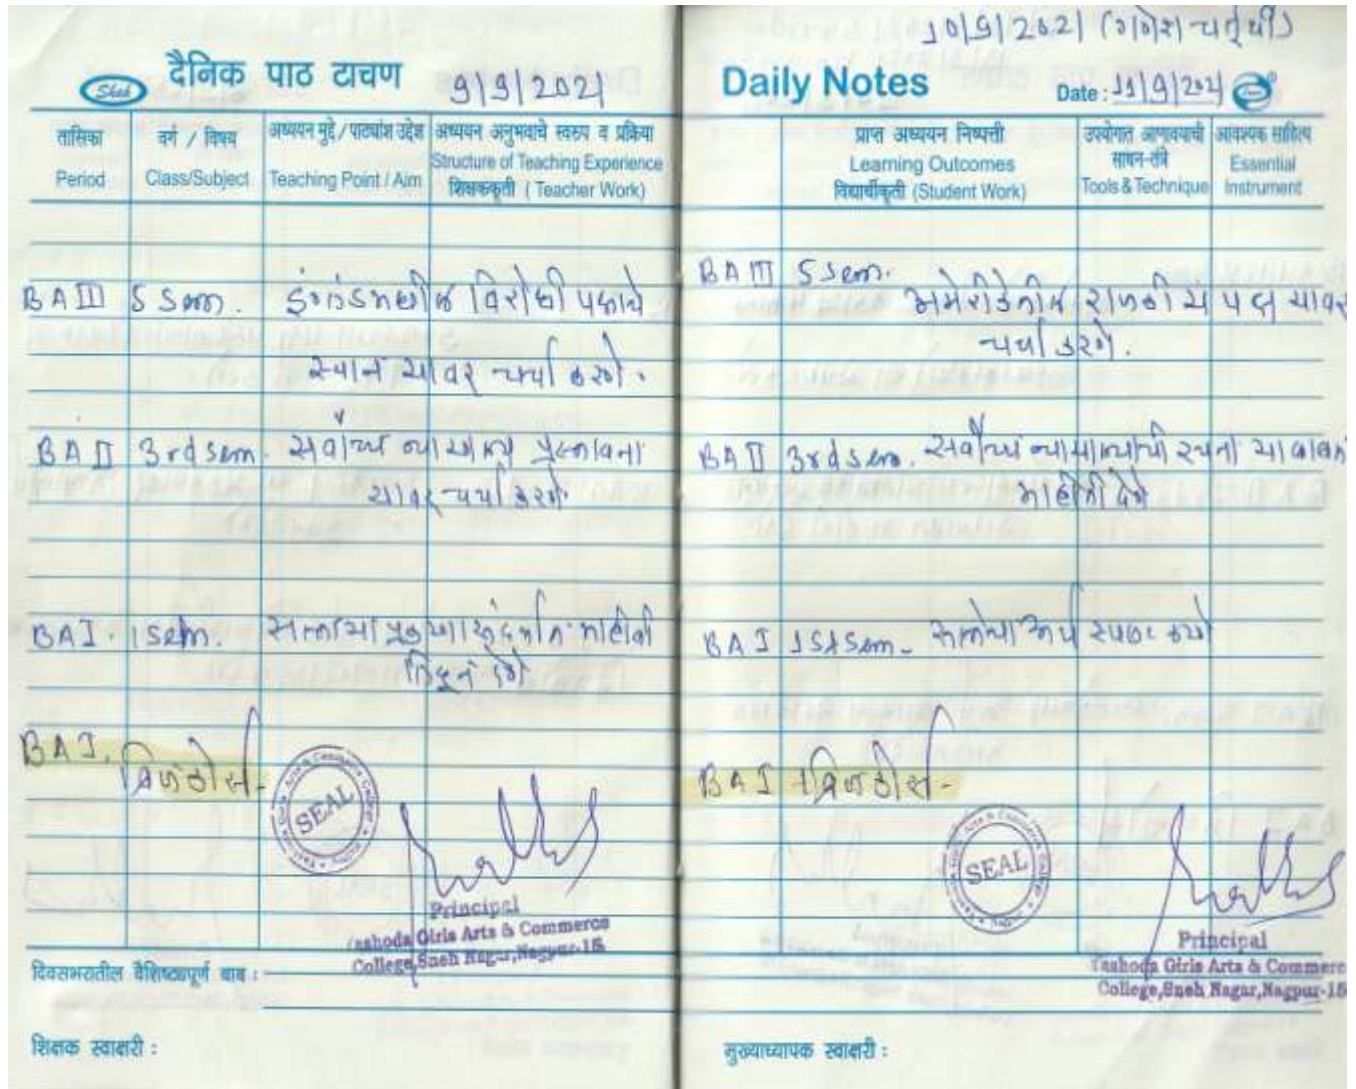 दैनिक पाठ टाचण 9/9/2021
Shah
तासिका
Period
वर्ग / विषय
Class/Subject
अध्ययन मुद्दे / पाठ्यांश उद्देश
Teaching Point / Aim
अध्ययन अनुभवाचे स्वरुप व प्रक्रिया
Structure of Teaching Experience
शिक्षककृती ( Teacher Work)
BA III 5 Sem. इंग्लंडमधील विरोधी पक्षाचे
स्थान यावर चर्चा करणे.
BA II 3rd sem. सर्वोच्च न्यायालय प्रस्तावना
यावर चर्चा करणे.
BA I. 1sem. माहीती
लिहून देणे
BA I.
SEAL
Principal
Yashoda Girls Arts & Commerce
College,Sneh Nagar,Nagpur-15
दिवसभरातील वैशिष्ट्यपूर्ण बाब :
शिक्षक स्वाक्षरी :
10/9/2021 (गणेश चतुर्थी)
Daily Notes Date : 11/9/2021
प्राप्त अध्ययन निष्पत्ती
Learning Outcomes
विद्यार्थीकृती (Student Work)
उपयोगात आणावयाची
साधन-तंत्रे
Tools & Technique
आवश्यक साहित्य
Essential
Instrument
BA III 5 sem.
अमेरीकेतील राजकीय पक्ष यावर
चर्चा करणे.
BA II 3rd sem. सर्वोच्च न्यायालयाची रचना याबाबत
माहीती देणे
BA I 1st sem. अर्थ स्पष्ट करणे
BA I
SEAL
Principal
Yashoda Girls Arts & Commerce
College,Sneh Nagar,Nagpur-15
मुख्याध्यापक स्वाक्षरी :